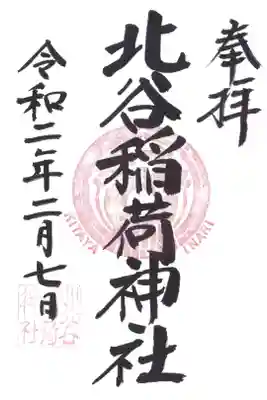 奉拝
北谷稲荷神社
KITAYA INARI
令和二年二月七日
北谷稲荷神社